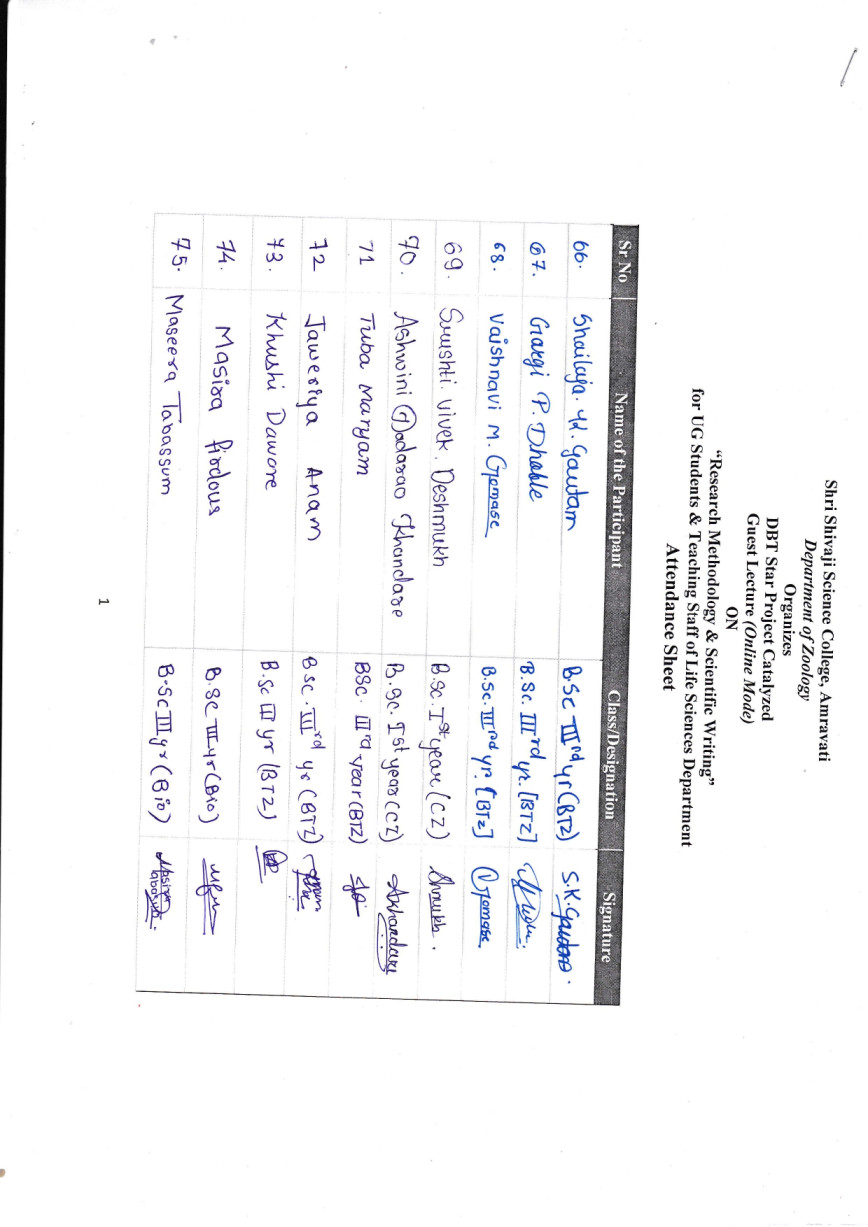 Shri Shivaji Science College, Amravati
Department of Zoology
Organizes
DBT Star Project Catalyzed
Guest Lecture (Online Mode)
ON
“Research Methodology & Scientific Writing”
for UG Students & Teaching Staff of Life Sciences Department
Attendance Sheet
Sr No Name of the Participant Class/Designation Signature
66. Shailaja. K. Gautam B.Sc IIInd yr (BTZ) S.K.Gautam.
67. Gargi P. Dhable B.Sc. IIIrd yr. [BTZ]
68. Vaishnavi M. Gomase B.Sc. IIIrd yr. [BTZ] Gomase
69. Srushti Vivek. Deshmukh B.Sc. Ist year (CZ)
70. Ashwini Gadarao Khandare B.Sc. Ist year (CZ) Akhandare
71 Tuba Maryam BSc. IIIrd year (BTZ)
72 Jaweriya Anam BSc. IIIrd yr (BTZ)
73. Khushi Dawore B.Sc III yr (BTZ)
74. Masira firdous B.Sc III yr (Bio)
75. Maseera Tabassum B.Sc III yr (Bio)
1